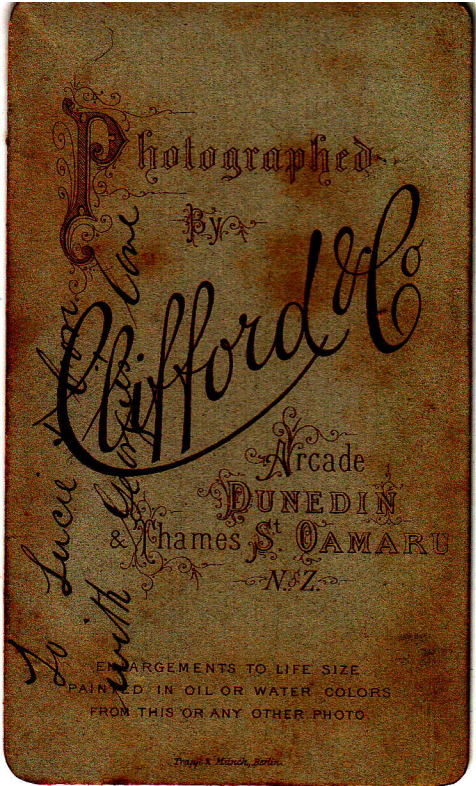 Photographed
By
Clifford & Co
Arcade
DUNEDIN
& Thames St. OAMARU
N.Z.
ENLARGEMENTS TO LIFE SIZE
PAINTED IN OIL OR WATER COLORS
FROM THIS OR ANY OTHER PHOTO
Trapp & Münch, Berlin.
To Lucie
with love